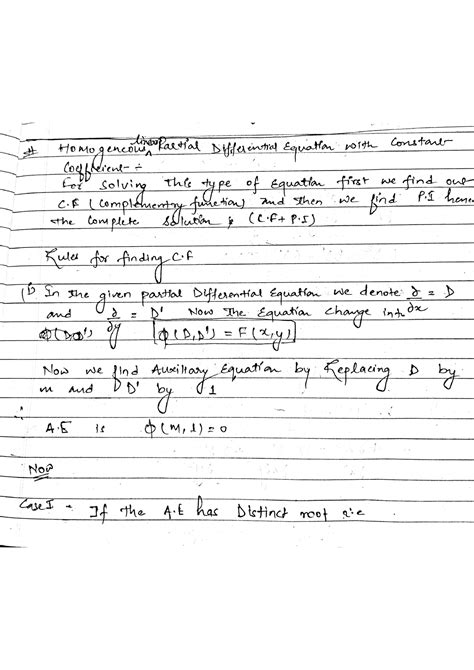 # Homogeneous linear Partial Differential Equation with Constant
Coefficient :-
For solving this type of Equation first we find our
C.F (Complementry function) and then we find P.I hence
the complete solution is (C.F + P.I)
Rules for finding C.F
(1) In the given partial Differential Equation we denote ∂/∂x = D
and ∂/∂y = D' Now the Equation change into
ϕ(D,D') = F(x,y)
Now we find Auxiliary Equation by Replacing D by
m and D' by 1
∴
A.E is ϕ(m,1)=0
Now
Case I - If the A.E has Distinct root i.e